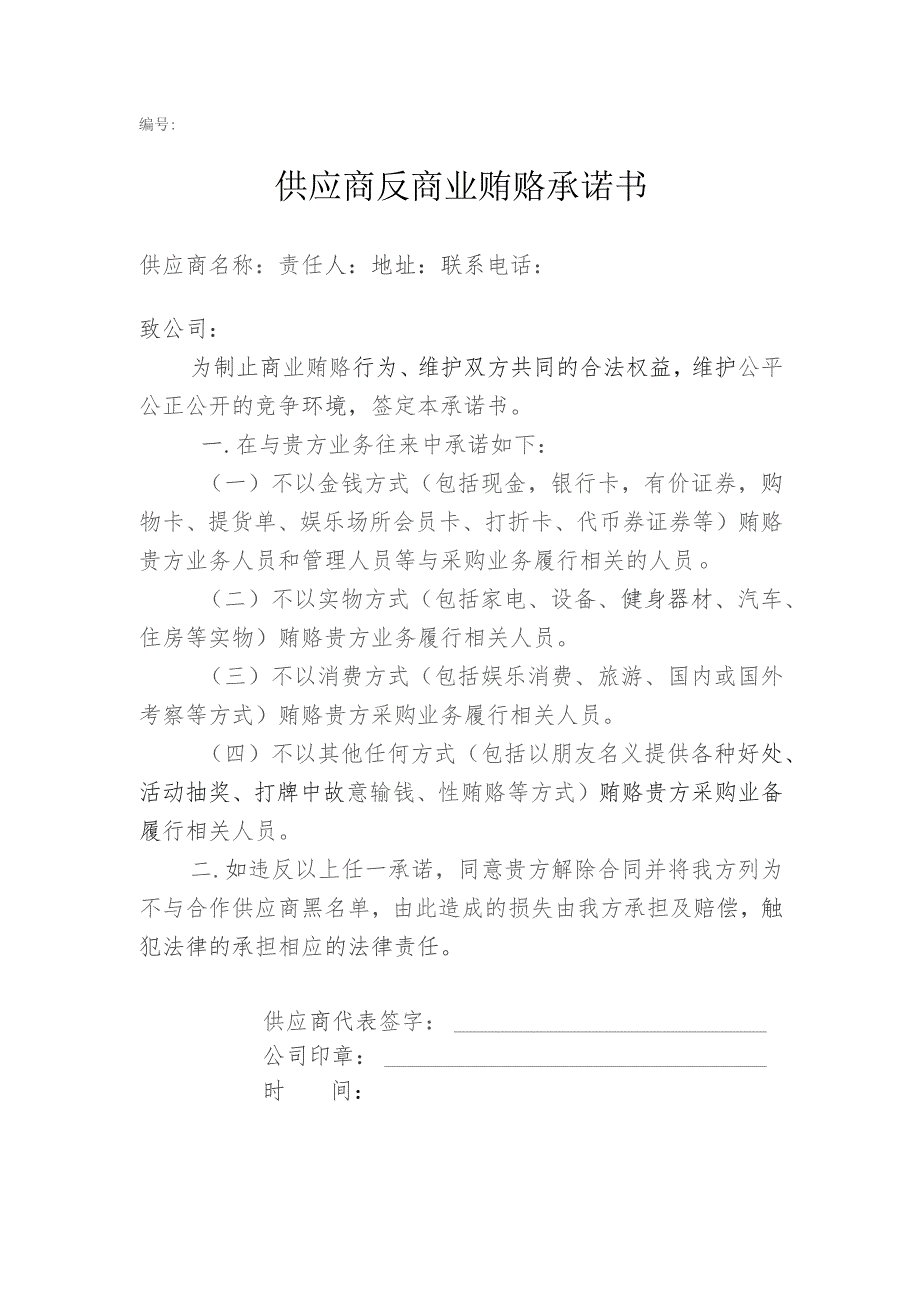 编号:
供应商反商业贿赂承诺书
供应商名称: 责任人: 地址: 联系电话:
致公司:
为制止商业贿赂行为、维护双方共同的合法权益,维护公平
公正公开的竞争环境,签定本承诺书。
一.在与贵方业务往来中承诺如下:
(一)不以金钱方式(包括现金,银行卡,有价证券,购
物卡、提货单、娱乐场所会员卡、打折卡、代币券证券等)贿赂
贵方业务人员和管理人员等与采购业务履行相关的人员。
(二)不以实物方式(包括家电、设备、健身器材、汽车、
住房等实物)贿赂贵方业务履行相关人员。
(三)不以消费方式(包括娱乐消费、旅游、国内或国外
考察等方式)贿赂贵方采购业务履行相关人员。
(四)不以其他任何方式(包括以朋友名义提供各种好处、
活动抽奖、打牌中故意输钱、性贿赂等方式)贿赂贵方采购业备
履行相关人员。
二.如违反以上任一承诺,同意贵方解除合同并将我方列为
不与合作供应商黑名单,由此造成的损失由我方承担及赔偿,触
犯法律的承担相应的法律责任。
供应商代表签字:
公司印章:
时 间: